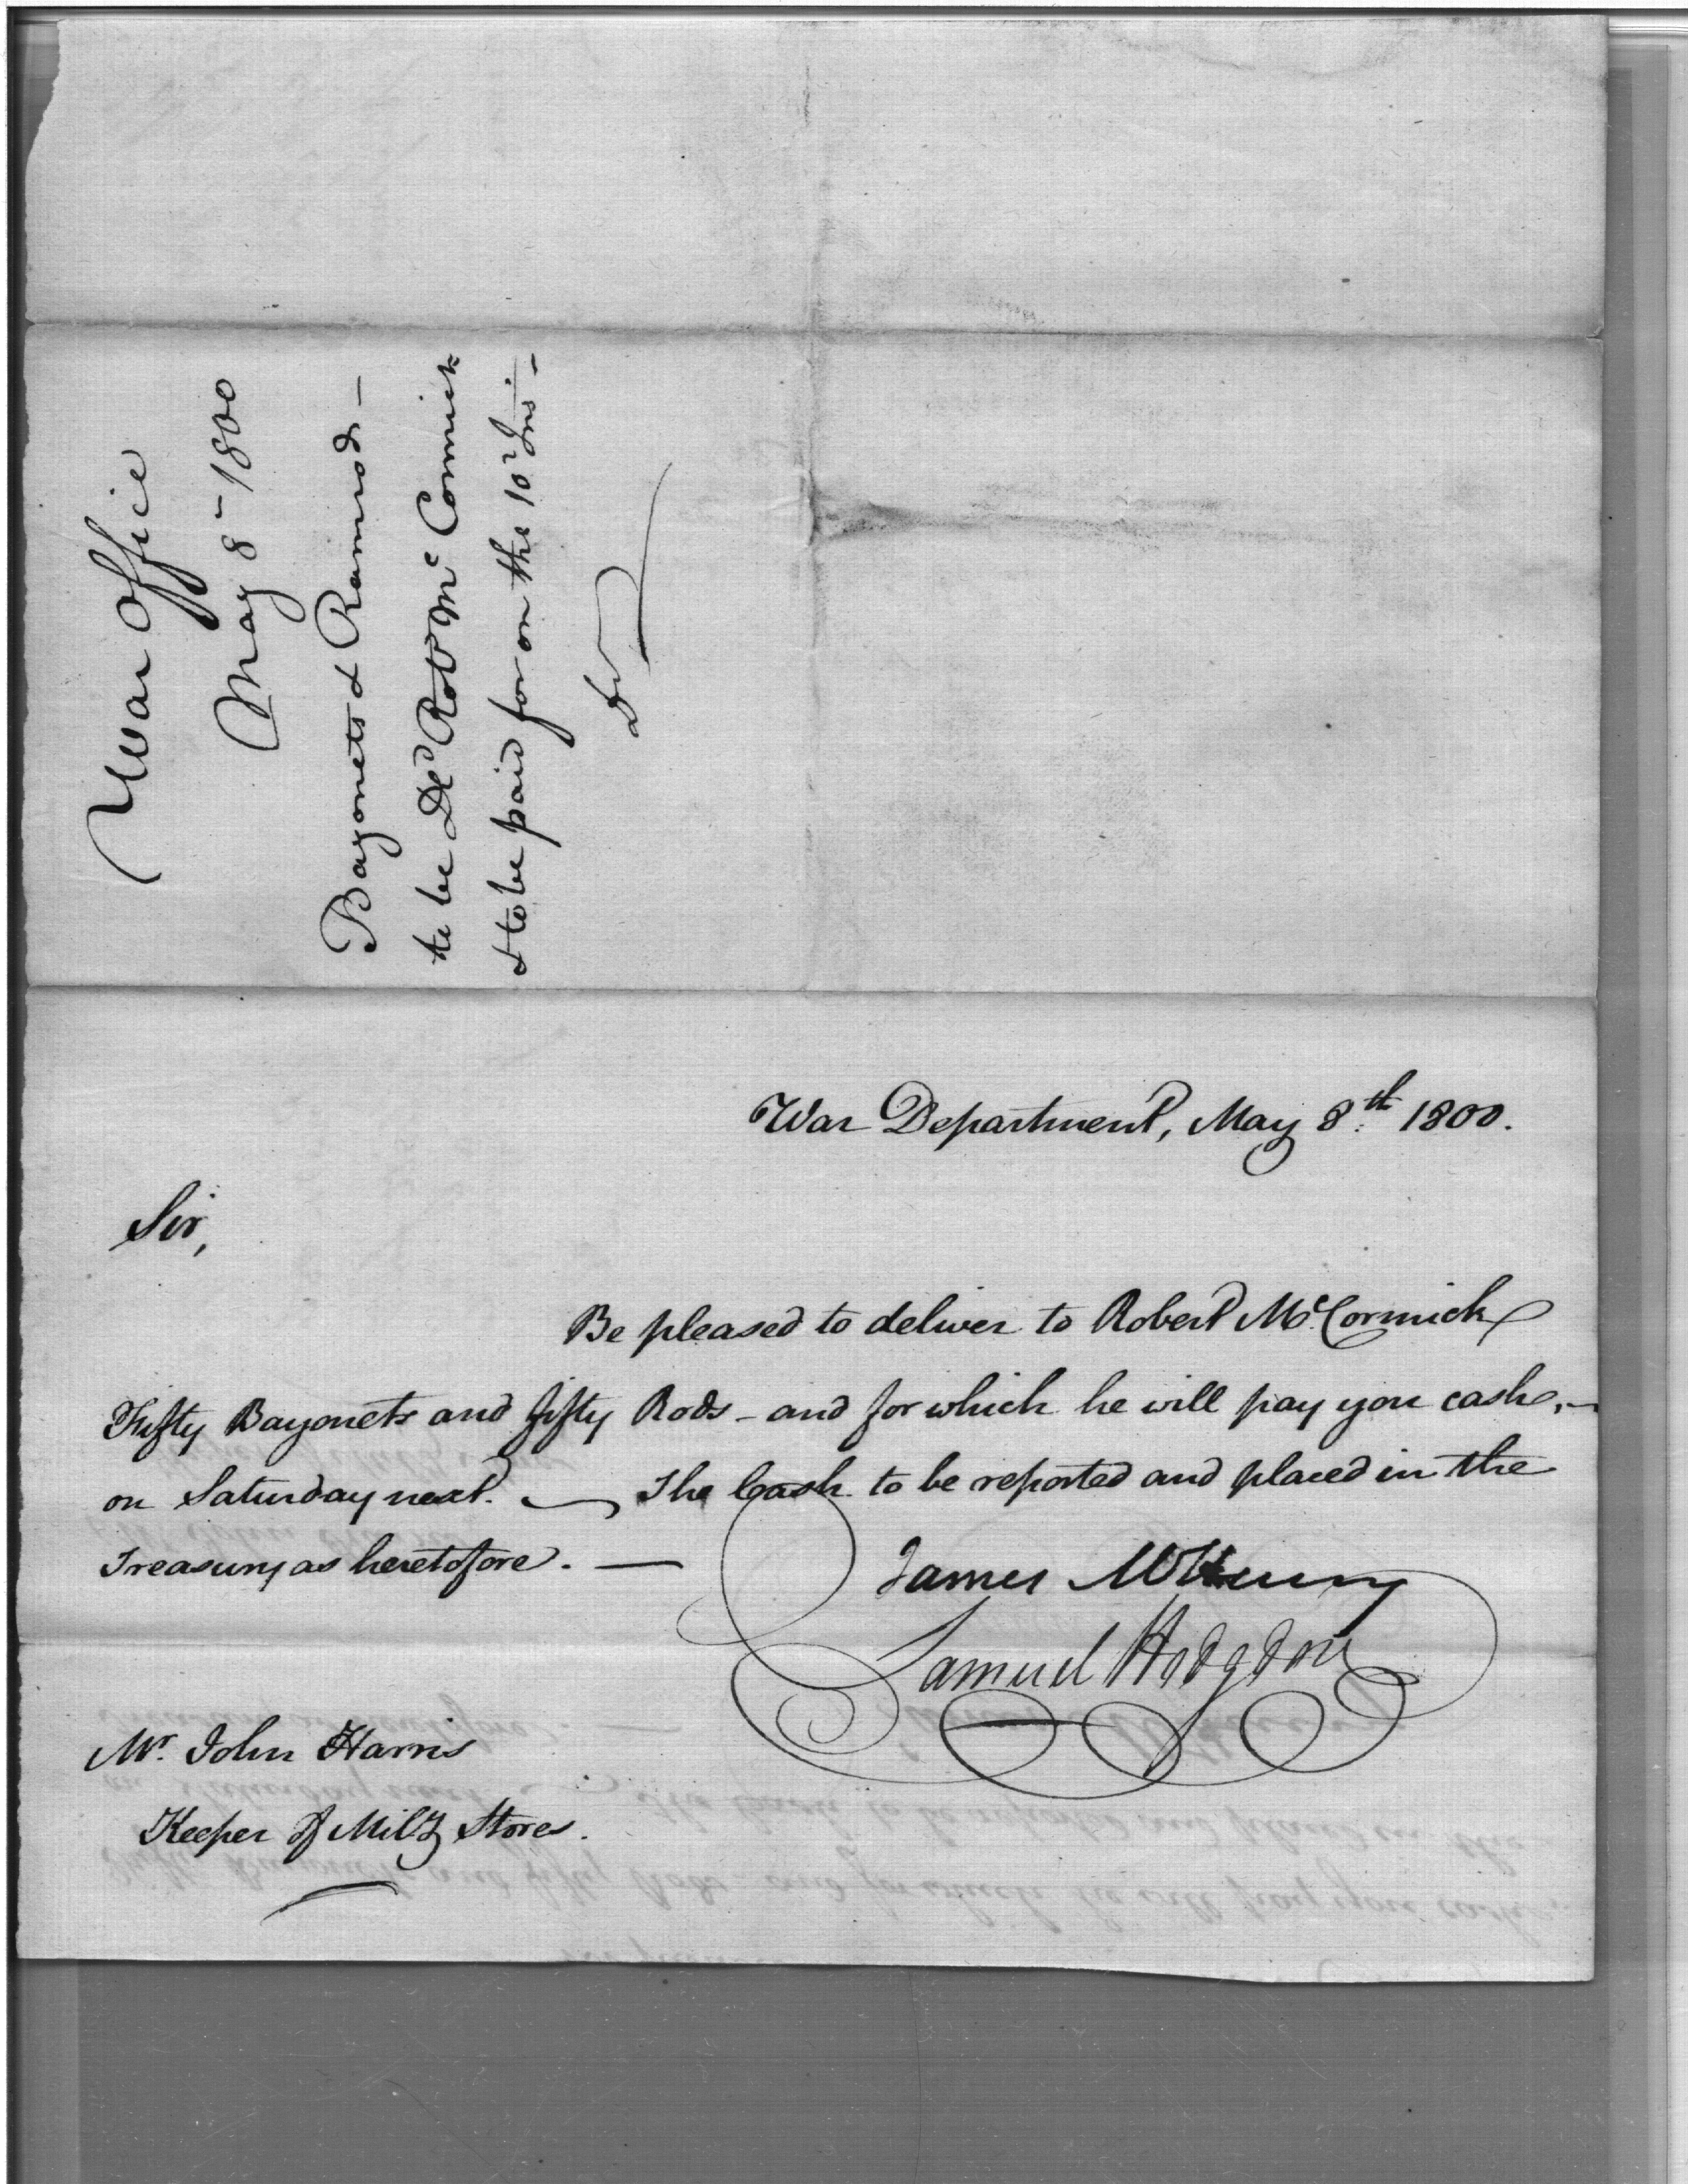 War Office
May 8 - 1800
Bayonets & Ramrods -
to be Dd Robt Mc Cormick
& to be paid for on the 10 Inst -
War Department, May 8th 1800.
Sir,
Be pleased to deliver to Robert McCormick
Fifty Bayonets and fifty Rods - and for which he will pay you cash, -
on Saturday next. — The Cash to be reported and placed in the
Treasury as heretofore. —
James McHenry
Samuel Hodgdon
Mr. John Harris
Keeper of Mily Stores.